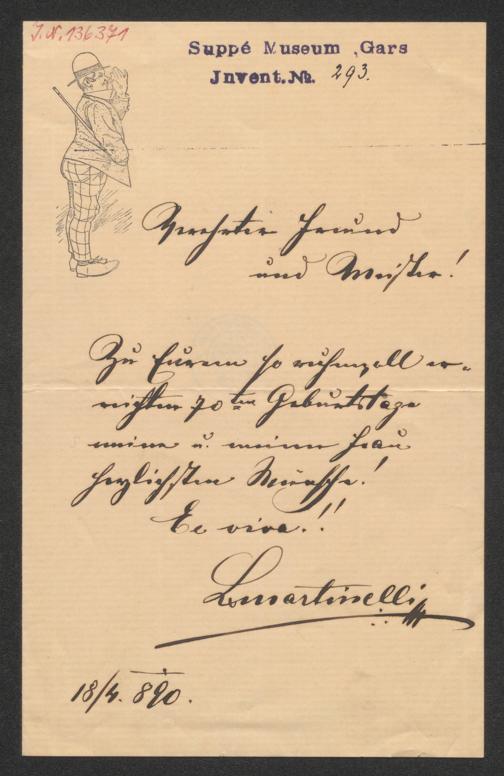 J.N. 136371
Suppé Museum, Gars
Invent. Nr. 293.
Verehrter Freund
und Meister!
Zu Eurem so ruhmvoll er-
reichten 70ten Geburtstage
meine u. meiner Frau
herzlichsten Wünsche!
E viva!!
LMartinelli
18/4. 890.